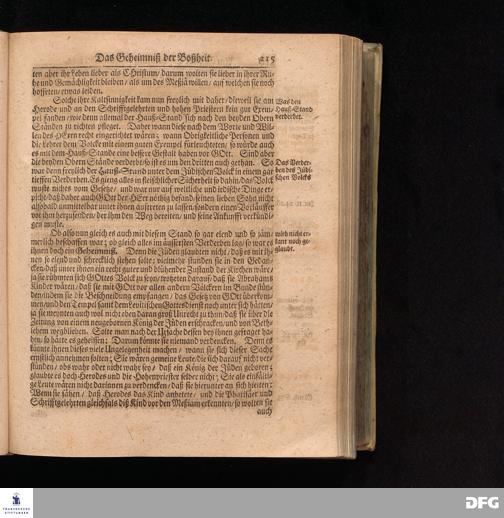 Das Geheimniß der Boßheit. 215
ten aber ihr Leben lieber als Christum/ darum wolten sie lieber in ihrer Ru-
he und Gemächligkeit bleiben/ als um des Meßiä willen/ auf welchen sie noch
hoffeten/ etwas leiden.
Solche ihre Kaltsinnigkeit kam nun freylich mit daher/ dieweil sie am
Herode und an den Schrifftgelehrten und hohen Priestern kein gut Exem-
pel fanden/ wie denn allemal der Hauß-Stand sich nach den beyden Obern
Ständen zu richten pfleget. Daher wann diese nach dem Worte und Wil-
len des HErrn recht eingerichtet wären; wann Obrigkeitliche Personen und
die Lehrer dem Volcke mit einem guten Exempel fürleuchteten/ so würde auch
es mit dem Hauß-Stande eine bessere Gestalt haben vor GOtt. Sind aber
die beyden Obern Stände verderbt/ so ist es um den dritten auch gethan. So
war denn freylich der Hauß-Stand unter dem Jüdischen Volck in einem gar
tieffen Verderben. Es gieng alles in fleischlicher Sicherheit so dahin/ das Volck
wuste nichts vom Gesetze/ und war nur auf weltliche und irrdische Dinge er-
picht/ daß daher auch GOtt der HErr nöthig befand/ seinen lieben Sohn nicht
alsobald unmittelbar unter ihnen aufftreten zu lassen/ sondern einen Vorläuffer
vor ihm herzusenden/ der ihm den Weg bereiten/ und seine Ankunfft verkündi-
gen muste.
Ob also nun gleich es auch mit diesem Stand so gar elend und so jäm-
merlich beschaffen war; ob gleich alles im äussersten Verderben lag/ so war es
ihnen doch ein Geheimniß. Denn die Jüden glaubten nicht/ daß es mit ih-
nen so elend und schrecklich stehen solte; vielmehr stunden sie in den Gedan-
cken/ daß unter ihnen ein recht guter und blühender Zustand der Kirchen wäre/
ja sie rühmten sich GOttes Volck zu seyn/ trotzten darauf/ daß sie Abrahams
Kinder wären/ daß sie mit GOtt vor allen andern Völckern im Bunde stün-
den/ indem sie die Beschneidung empfangen/ das Gesetz von GOtt überkom-
men/ und den Tempel samt dem Levitischen Gottesdienst noch unter sich hätten/
ja sie meynten auch wol nicht eben daran groß Unrecht zu thun/ daß sie über die
Zeitung von einem neugebornen König der Jüden erschracken/ und von Beth-
lehem wegblieben. Solte man nach der Ursache dessen bey ihnen gefraget ha-
ben/ so hätte es geheissen: Darum könnte sie niemand verdencken. Denn es
könnte ihnen dieses viele Ungelegenheit machen/ wann sie sich dieser Sache
ernstlich annehmen solten; Sie wären gemeine Leute/ die sich darauf nicht ver-
stünden/ obs wahr oder nicht wahr sey/ daß ein König der Jüden geboren;
glaubte es doch Herodes und die Hohenpriester selber nicht; Sie als einfälti-
ge Leute wären nicht darinnen zu verdencken/ daß sie hierunter an sich hielten:
Wenn sie sähen/ daß Herodes das Kind anbetete/ und die Pharisäer und
Schrifftgelehrten gleichfals diß Kind vor den Meßiam erkenneten/ so wolten sie
auch
Was den
Hauß-Stand
verderbet.
Das Verder-
ben des Jüdi-
schen Volcks
wird nicht er-
kant noch ge-
glaubt.
FRANCKESCHE
STIFTUNGEN
DFG